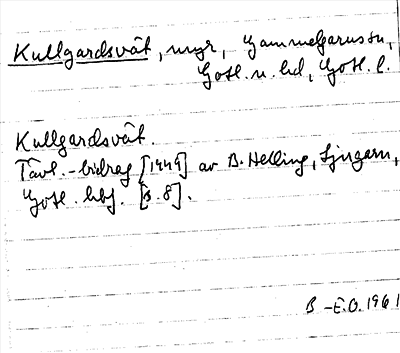 Kullgardsvät, myr, Gammelgarns sn,
Gotl. n. hd, Gotl. l.
Kullgardsvät.
Tävl.-bidrag [1949] av B. Helling, Ljugarn,
Gotl. hbg. [s. 8].
B-E.O. 1961